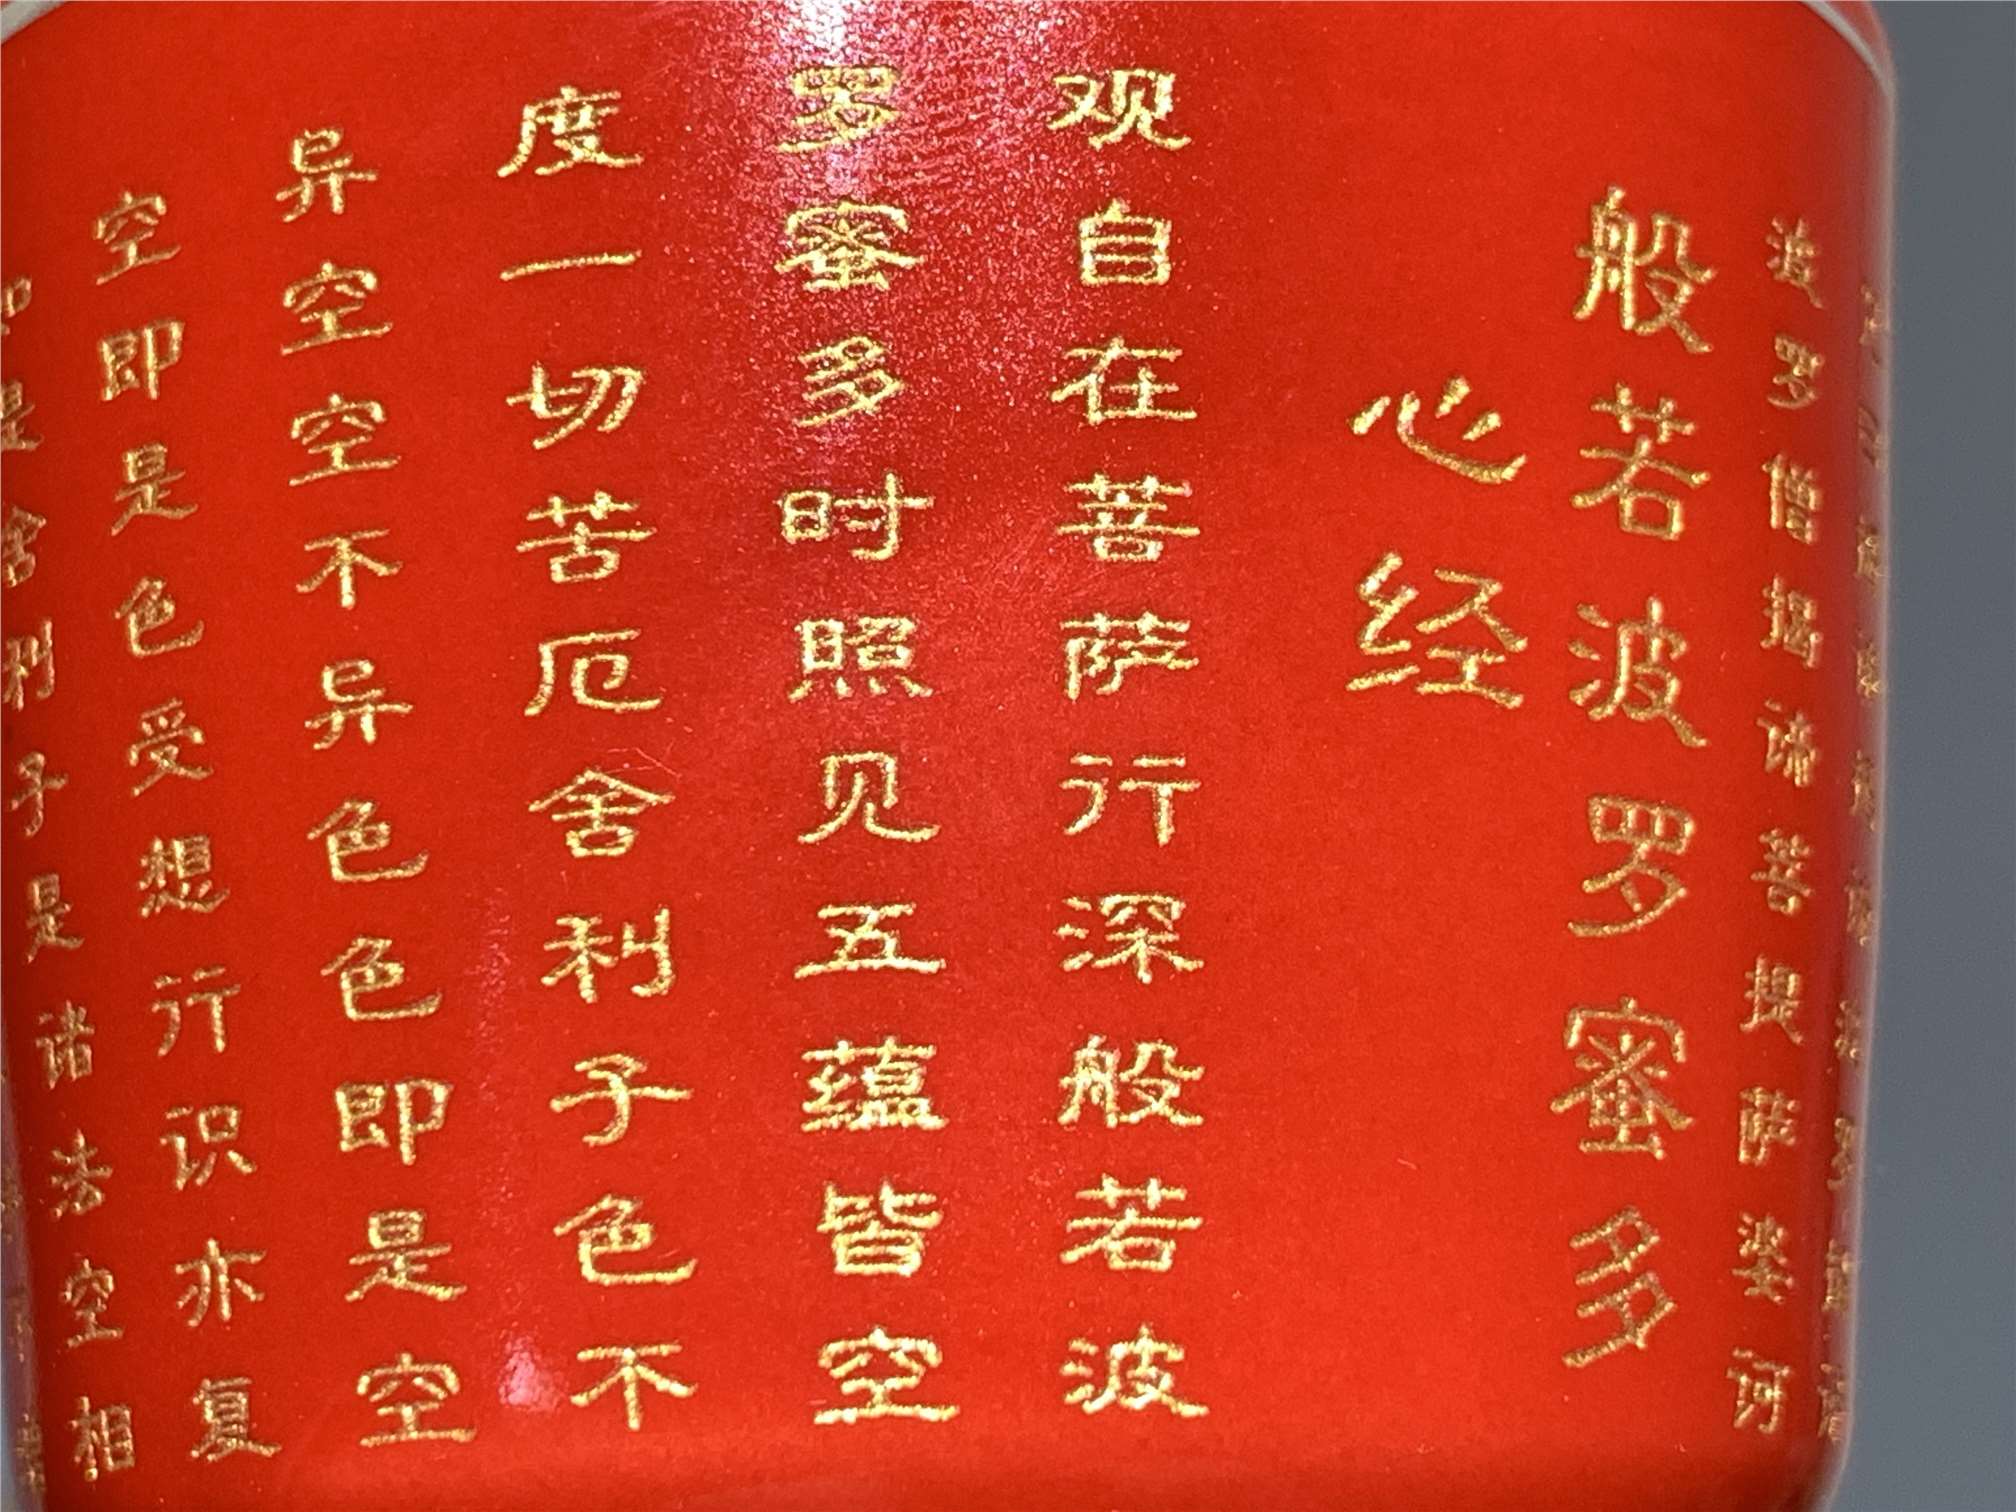 波罗僧揭谛菩提萨婆诃
般若波罗蜜多
心经
观自在菩萨行深般若波
罗蜜多时照见五蕴皆空
度一切苦厄舍利子色不
异空空不异色色即是空
空即是色受想行识亦复
是舍利子是诸法空相